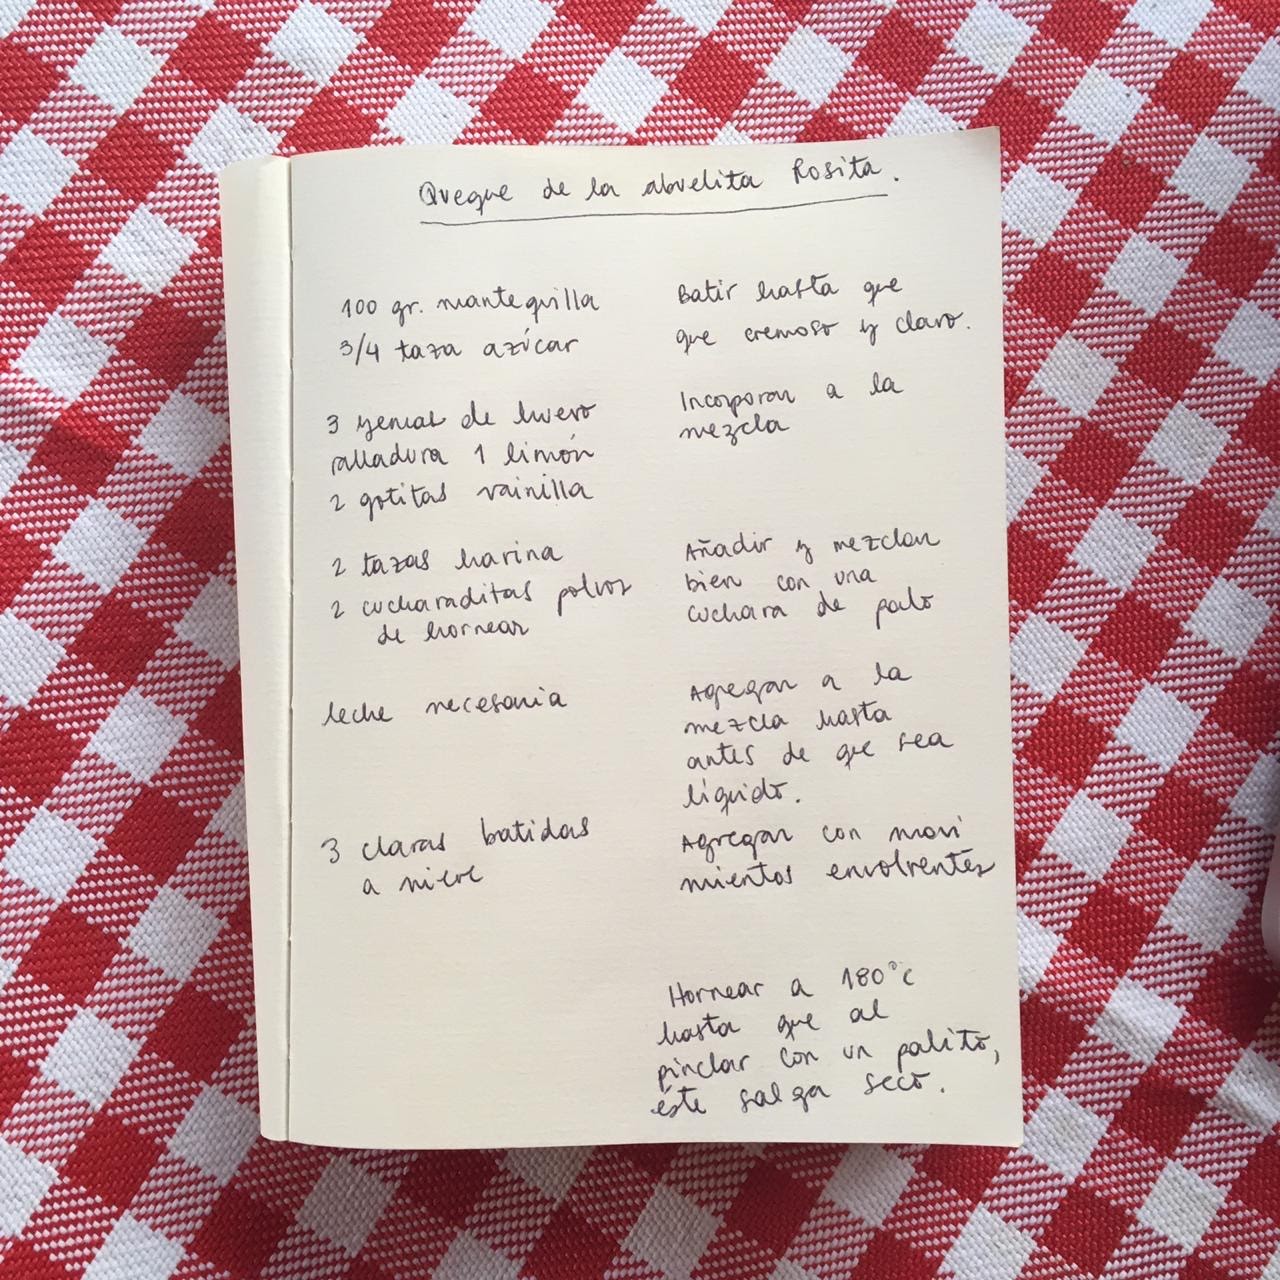 Queque de la abuelita Rosita.
100 gr. mantequilla
3/4 taza azúcar
Batir hasta que
que cremoso y claro.
3 yemas de huevo
ralladura 1 limón
2 gotitas vainilla
Incorporar a la
mezcla
2 tazas harina
2 cucharaditas polvos
de hornear
Añadir y mezclar
bien con una
cuchara de palo
leche necesaria
Agregar a la
mezcla hasta
antes de que sea
líquido.
3 claras batidas
a nieve
Agregar con movi
mientos envolventes
Hornear a 180°C
hasta que al
pinchar con un palito,
éste salga seco.